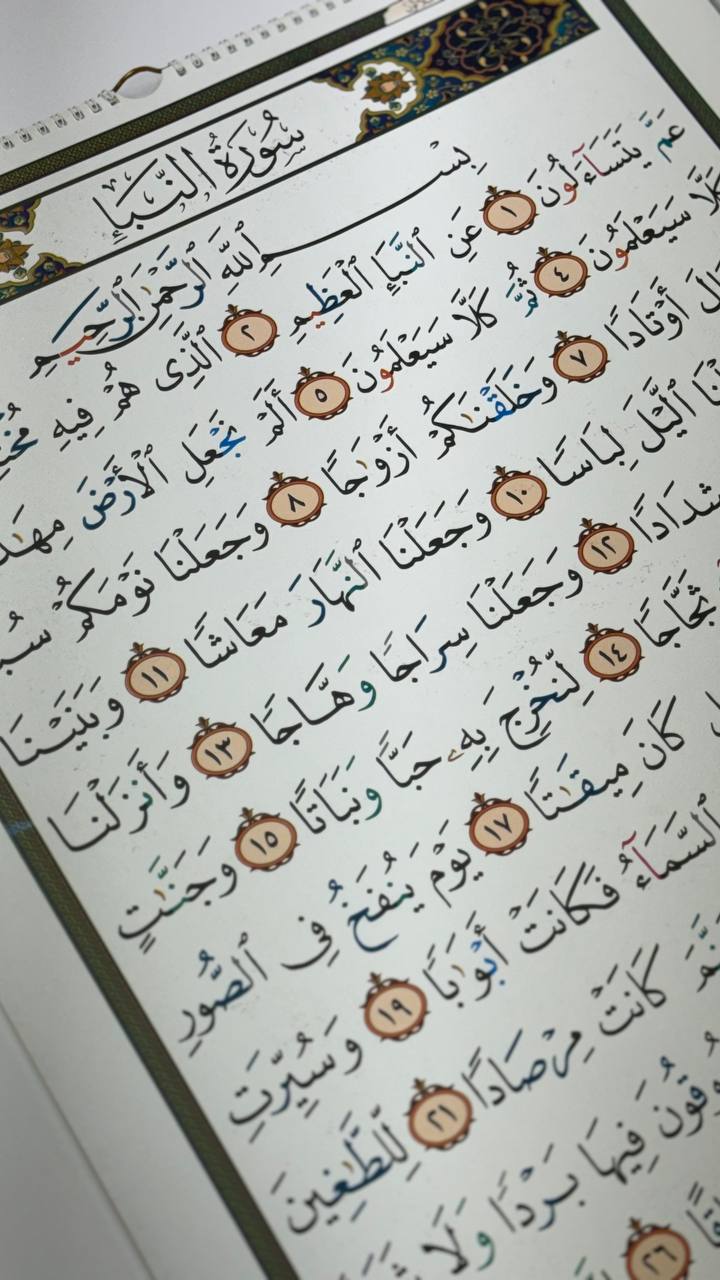 سُورَةُ النَّبَإِ
بِسْمِ ٱللَّهِ ٱلرَّحْمَٰنِ ٱلرَّحِيمِ
عَمَّ يَتَسَآءَلُونَ ١ عَنِ ٱلنَّبَإِ ٱلْعَظِيمِ ٢ ٱلَّذِى هُمْ فِيهِ
كَلَّا سَيَعْلَمُونَ ٤ ثُمَّ كَلَّا سَيَعْلَمُونَ ٥ أَلَمْ نَجْعَلِ ٱلْأَرْضَ
أَوْتَادًا ٧ وَخَلَقْنَٰكُمْ أَزْوَٰجًا ٨ وَجَعَلْنَا نَوْمَكُمْ
ٱلَّيْلَ لِبَاسًا ١٠ وَجَعَلْنَا ٱلنَّهَارَ مَعَاشًا ١١ وَبَنَيْنَا
شِدَادًا ١٢ وَجَعَلْنَا سِرَاجًا وَهَّاجًا ١٣ وَأَنزَلْنَا
ثَجَّاجًا ١٤ لِّنُخْرِجَ بِهِۦ حَبًّا وَنَبَاتًا ١٥ وَجَنَّٰتٍ
كَانَ مِيقَٰتًا ١٧ يَوْمَ يُنفَخُ فِى ٱلصُّورِ
ٱلسَّمَآءُ فَكَانَتْ أَبْوَٰبًا ١٩ وَسُيِّرَتِ
كَانَتْ مِرْصَادًا ٢١ لِّلطَّٰغِينَ
فِيهَا بَرْدًا وَلَا
٢٦